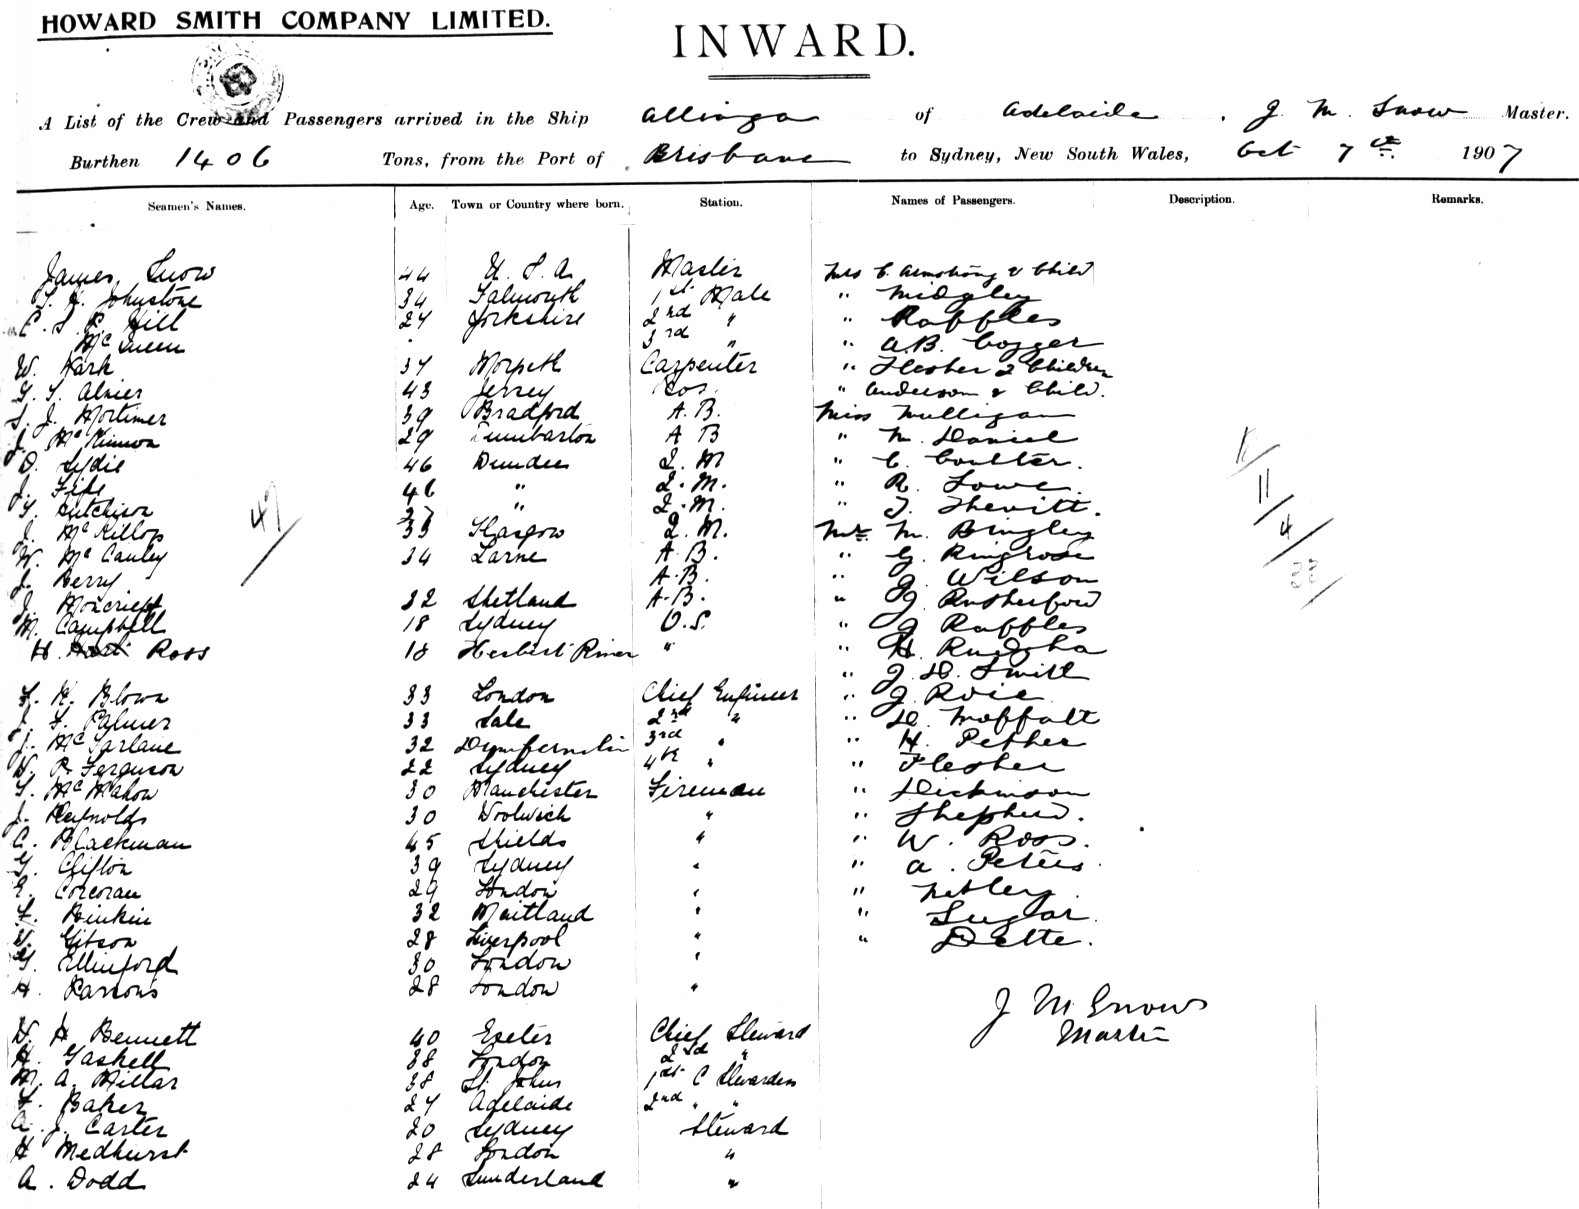 HOWARD SMITH COMPANY LIMITED.
INWARD.
A List of the Crew and Passengers arrived in the Ship Allinga of Adelaide, J. M. Snow Master.
Burthen 1406 Tons, from the Port of Brisbane to Sydney, New South Wales, Oct 7th 1907
Seamen's Names. Age. Town or Country where born. Station. Names of Passengers. Description. Remarks.
James Snow 44 U.S.A. Master Mrs C. Armstrong & Child
Johnstone 34 Falmouth 1st Mate " Midgley
Hill 27 Yorkshire 2nd " " Raffles
McQueen 3rd " " A.B. Cogger
W. Hark 37 Morpeth Carpenter " Flesher 2 Children
43 Jersey Bos. " Anderson & Child.
S. J. Mortimer 39 Bradford A.B. Miss Mulligan
J. McKinnon 29 Dumbarton A B " M. Daniel
D. Lydie 46 Dundee Q. M " C. Coulter.
J. Fife 46 " Q. M. " R. Lowe
Hutchison 37 " Q. M. " Shevitt.
J. McKillop 33 Glasgow Q. M. Mr M. Bingley
W. McCauley 34 Larne A. B. " G. Ringrose
J. Berry A. B. " J. Wilson
J. Moncrieff 32 Shetland A. B. " J. Rutherford
M. Campbell 18 Sydney O.S. " J. Raffles
H. Ross 18 Herbert River " " H. Rudpha
" J. D. Swift
Blown 33 London Chief Engineer " J. Rose
Palmer 33 Sale 2nd " " D. Moffatt
J. McFarlane 32 Dumfernlin 3rd " " H. Pether
W. R. Ferguson 22 Sydney 4th " " Flesher
McMahon 30 Manchester Fireman " Dickinson
J. Reynolds 30 Woolwich " " Shepherd.
C. Blackman 45 Shields " " W. Ross.
Clifton 39 Sydney " " A. Peters
E. Corcoran 29 London " " Netley
Binkin 32 Maitland " " Sugar.
Gibson 28 Liverpool " " Delte.
Ellinford 30 London "
H. Parsons 28 London "
J M Snow
Master
W. H. Bennett 40 Exeter Chief Steward
H. Gaskell 38 London 2nd "
M. A. Millar 38 St Johns 1st C Stewardess
F. Baker 27 Adelaide 2nd " "
A. J. Carter 20 Sydney Steward
H Medhurst 28 London "
A. Dodd 24 Sunderland "
47/
11/
4/